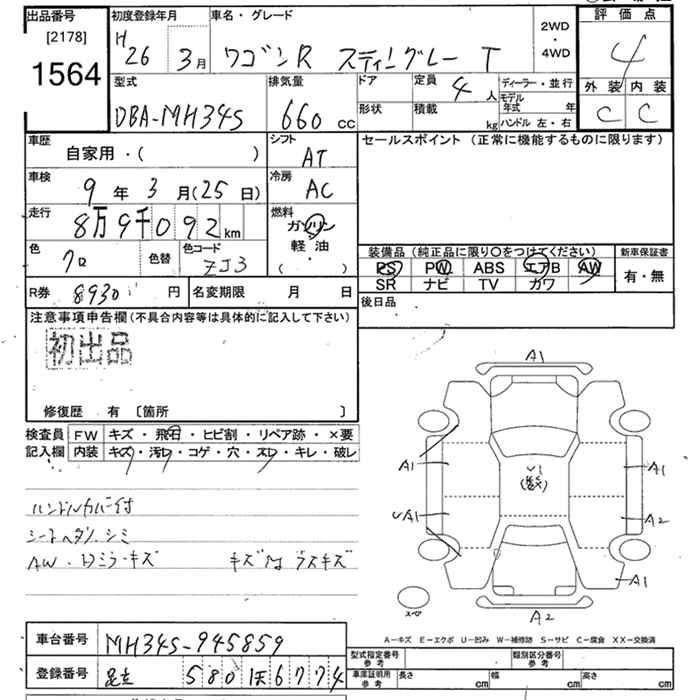 出品番号
[2178]
1564
初度登録年月
H 26 3月
車名・グレード
ワゴンR スティングレー T
2WD
・
4WD
評価点
4
外装 内装
C C
型式
DBA-MH34S
排気量
660 cc
ドア
形状
定員 4 人
積載 kg
ディーラー・並行
モデル年式 年
ハンドル 左・右
車歴
自家用・( )
シフト
AT
セールスポイント (正常に機能するものに限ります)
車検
9年 3月(25日)
冷房
AC
走行
8万9千092 km
燃料
ガソリン
軽・油
( ・ )
色
クロ
色替
色コード
ZJ3
装備品 (純正品に限り〇をつけてください)
PS PW ABS エアB AW
SR ナビ TV カワ
新車保証書
有・無
R券 8930 円
名変期限 月 日
後日品
注意事項申告欄(不具合内容等は具体的に記入して下さい)
初出品
修復歴 有 〔箇所 〕
検査員
記入欄
FW キズ・飛石・ヒビ割・リペア跡・×要
内装 キズ・汚れ・コゲ・穴・スレ・キレ・破レ
ハンドルカバー付
シートヘタリ、シミ
AW・ドミラーキズ
A1
A1
A1
A1
A2
A1
A2
スペア
A-キズ E-エクボ U-凹み W-補修跡 S-サビ C-腐食 XX-交換済
車台番号 MH34S-945859
登録番号 580 6774
型式指定番号
参考
類別区分番号
参考
車庫証明用
参考
長さ cm 幅 cm 高さ cm